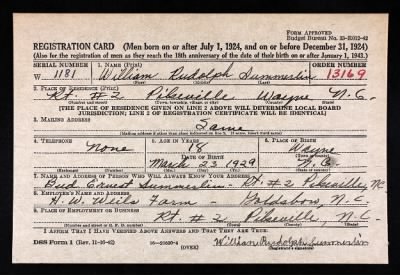 FORM APPROVED
Budget Bureau No. 33-R012-42
REGISTRATION CARD (Men born on or after July 1, 1924, and on or before December 31, 1924)
(Also for the registration of men as they reach the 18th anniversary of the date of their birth on or after January 1, 1943.)
SERIAL NUMBER 1. NAME (Print) ORDER NUMBER
W 1181 William Rudolph Summerlin 13169
(First) (Middle) (Last)
2. PLACE OF RESIDENCE (Print)
Rt. # 2 Pikeville Wayne N.C.
(Number and street) (Town, township, village, or city) (County) (State)
[THE PLACE OF RESIDENCE GIVEN ON LINE 2 ABOVE WILL DETERMINE LOCAL BOARD
JURISDICTION; LINE 2 OF REGISTRATION CERTIFICATE WILL BE IDENTICAL]
3. MAILING ADDRESS
Same
(Mailing address if other than place indicated on line 2. If same, insert word same)
4. TELEPHONE 5. AGE IN YEARS 6. PLACE OF BIRTH
None 18 Wayne
DATE OF BIRTH
March 23 1929 N.C.
(Exchange) (Number) (Mo.) (Day) (Yr.) (State or country)
7. NAME AND ADDRESS OF PERSON WHO WILL ALWAYS KNOW YOUR ADDRESS
Bud Ernest Summerlin - Rt. # 2 Pikeville, N.C.
8. EMPLOYER'S NAME AND ADDRESS
H. W. Weils Farm - Goldsboro, N.C.
9. PLACE OF EMPLOYMENT OR BUSINESS
Rt. # 2 Pikeville, N.C.
(Number and street or R. F. D. number) (Town) (County) (State)
I AFFIRM THAT I HAVE VERIFIED ABOVE ANSWERS AND THAT THEY ARE TRUE.
DSS Form 1 (Rev. 11-16-42) (OVER) William Rudolph Summerlin